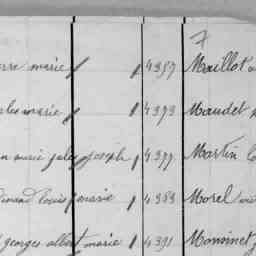 7
erre marie 4357 Maillot
les marie 4373 Maudet
n marie jules joseph 4377 Martin
dinand louis marie 4383 Morel
georges albert marie 4391 Monsinet